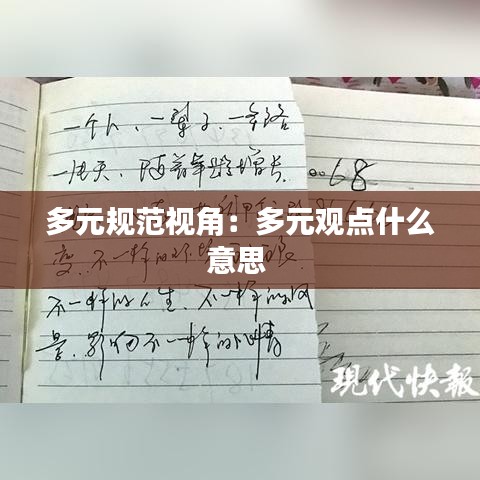 一个人、一辈子、一条路
一片天、随着年龄增长
多元规范视角：多元观点什么
意思
变、不一样的环境
不一样的人生、不一样的风
景、影响不一样的心情
68
現代快報